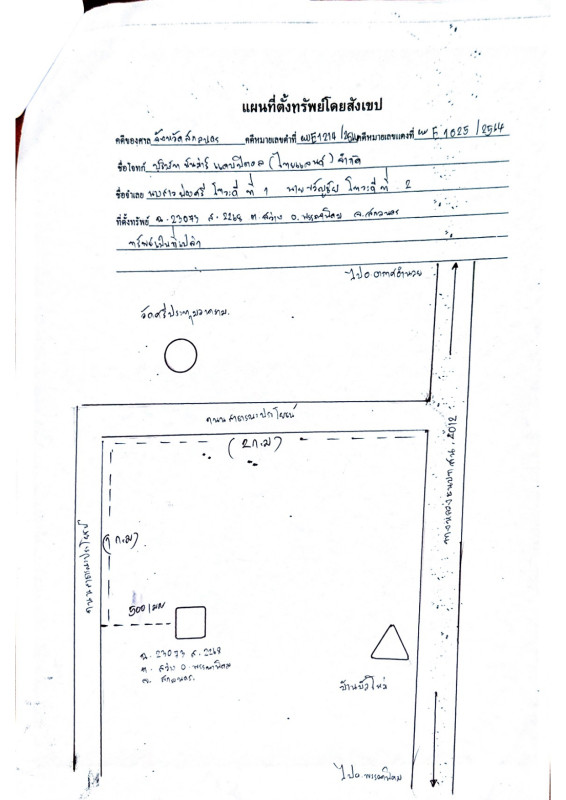 แผนที่ตั้งทรัพย์โดยสังเขป
คดีของศาล จังหวัดสกลนคร คดีหมายเลขดำที่ ผบE1214/2564 คดีหมายเลขแดงที่ ผบ E 1025 / 2564
ชื่อโจทก์ บริษัท แคปปิตอล (ไทยแลนด์) จำกัด
ชื่อจำเลย นางสาว ที่ 1 นาย ที่ 2
ที่ตั้งทรัพย์ ฉ. 23073 ส. 2268 ต. สว่าง อ. พรรณานิคม จ. สกลนคร
ทรัพย์เป็นที่เปล่า
ไป อ. อากาศอำนวย
วัดศรีประทุมวนาราม
ถนนสาธารณะประโยชน์
(2 ก.ม)
ทางหลวงชนบท สน. 2012
ถนนสาธารณประโยชน์
(1 ก.ม)
500 เมตร
ฉ. 23073 ส. 2268
ต. สว่าง อ. พรรณานิคม
จ. สกลนคร
บ้านบัวใหญ่
ไป อ. พรรณานิคม